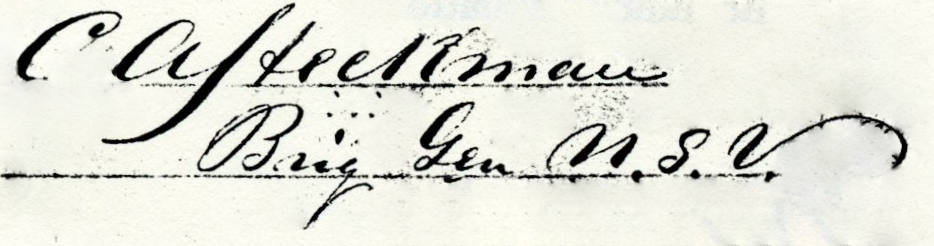 C A Heckman
Brig Gen U.S.V.